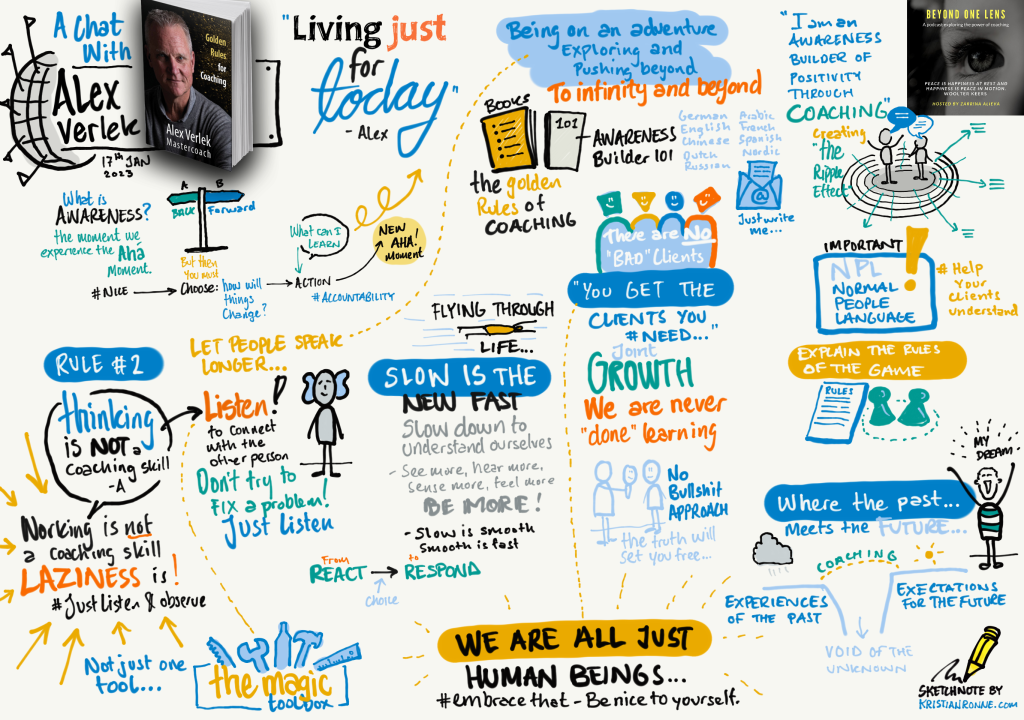 A Chat
With
Alex
Verlek
17th JAN
2023
Golden
Rules
for
Coaching
Alex Verlek
Mastercoach
"Living just
for
today"
- Alex
Being on an adventure
Exploring and
Pushing beyond
To infinity and beyond
BOOKS
101
AWARENESS
Builder 101
the golden
Rules of
COACHING
German
English
Chinese
Dutch
Russian
Arabic
French
Spanish
Nordic
@
Just write
me...
"I am an
AWARENESS
BUILDER OF
POSITIVITY
THROUGH
COACHING"
BEYOND ONE LENS
A podcast exploring the power of coaching
PEACE IS HAPPINESS AT REST AND
HAPPINESS IS PEACE IN MOTION.
WOOLTER KEERS.
HOSTED BY ZARRINA ALIEVA
Creating
"the
Ripple
Effect"
What is
AWARENESS?
the moment we
experience the Ahá
Moment.
A
B
BACK
Forward
But then
You must
#NICE
Choose:
how will
things
Change?
ACTION
#ACCOUNTABILITY
What can I
LEARN
NEW
AHA!
Moment
There are No
"BAD" Clients
"YOU GET THE
CLIENTS YOU
#NEED..."
IMPORTANT
!
NPL
NORMAL
PEOPLE
LANGUAGE
# Help
Your
Clients
understand
EXPLAIN THE RULES
OF THE GAME
RULES
RULE #2
thinking
is NOT a
coaching skill
-A
LET PEOPLE SPEAK
LONGER...
Listen!
to connect
with the
other person
Don't try to
FIX a problem!
Just Listen
FLYING THROUGH
LIFE...
SLOW IS THE
NEW FAST
Slow down to
Understand ourselves
- See more, hear more,
sense more, feel more
BE MORE!
- Slow is smooth
Smooth is fast
From
to
REACT
RESPOND
Choice
Joint
GROWTH
We are never
"done" learning
No
Bullshit
APPROACH
the truth will
set you free...
MY
DREAM
Where the past...
Meets the FUTURE...
COACHING
EXPERIENCES
OF THE PAST
EXECTATIONS
FOR THE FUTURE
VOID OF THE
UNKNOWN
Norking is not
a coaching skill
LAZINESS is!
#Just listen & observe
Not just one
tool...
the magic
toolbox
WE ARE ALL JUST
HUMAN BEINGS...
#embrace that - Be nice to yourself.
SKETCHNOTE BY
KRISTIANRONNE.COM